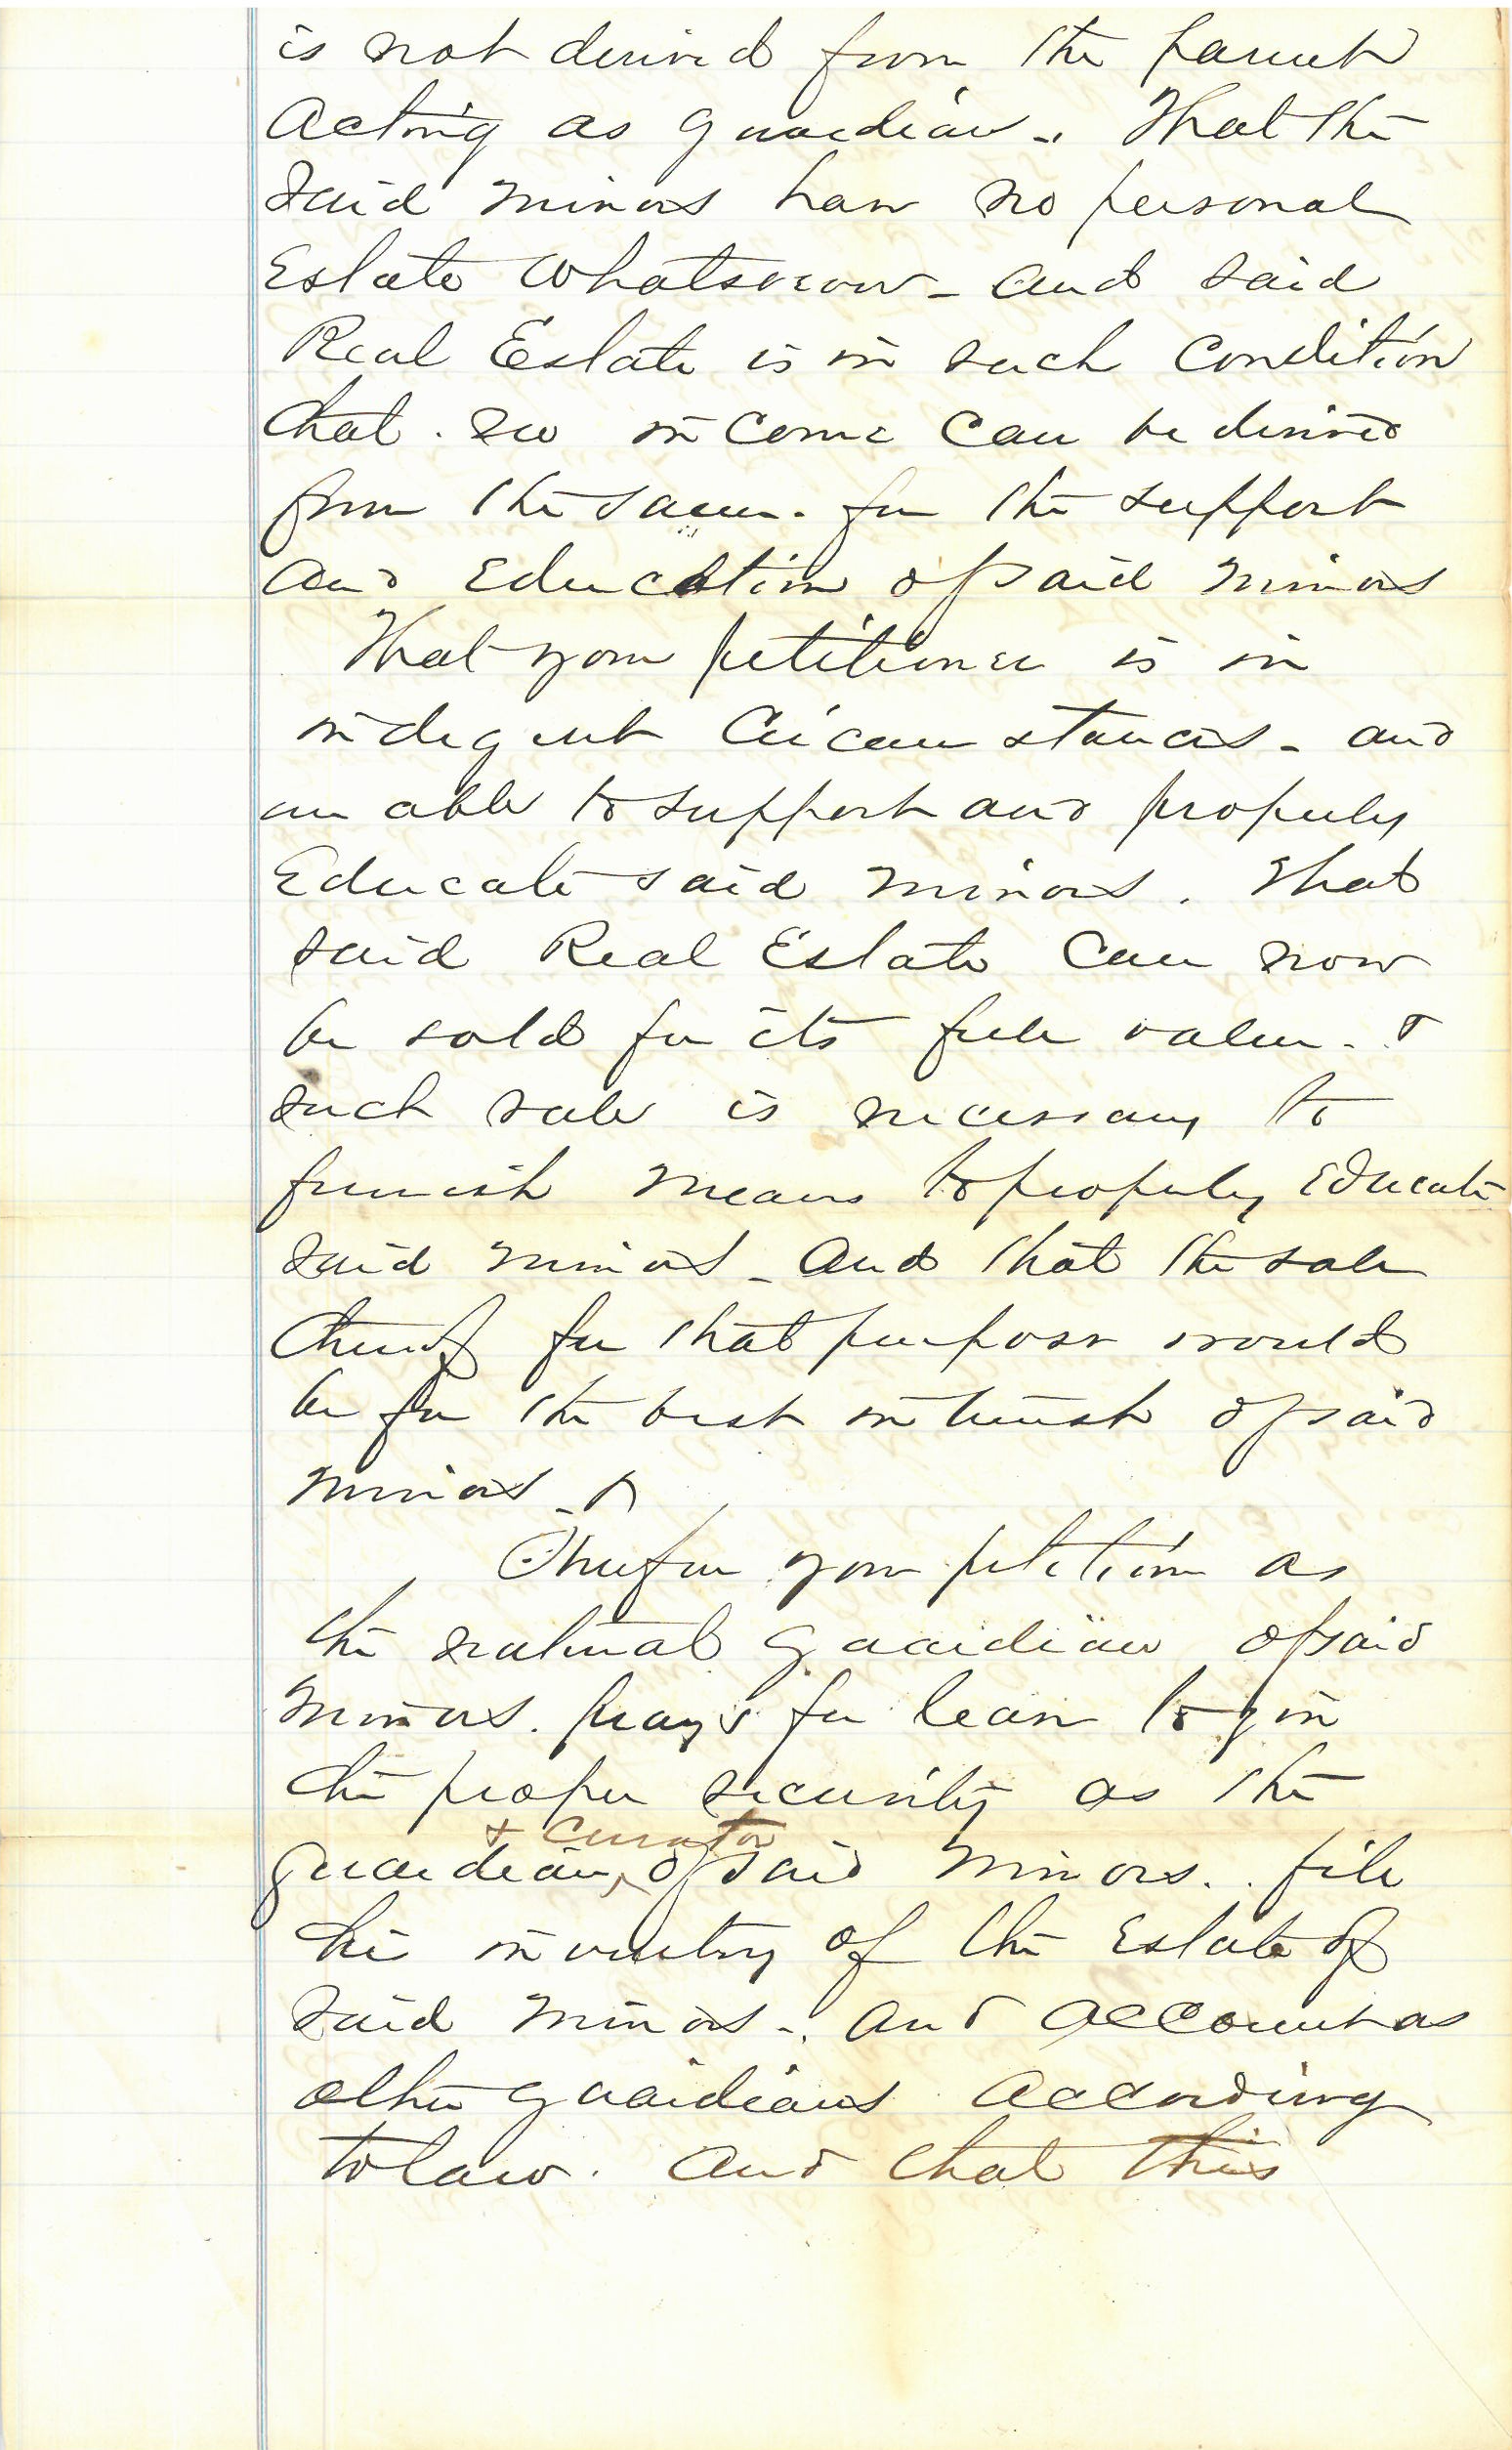 is not derived from the parent
acting as guardian. That the
said minors have no personal
Estate whatsoever - and said
Real Estate is in such condition
that no income can be derived
from the same. for the support
and Education of said minors
That your petitioner is in
indigent Circumstances - and
unable to support and properly
Educate said minors. That
said Real Estate can now
be sold for its full value. &
such sale is necessary to
furnish means to properly Educate
said minors - and that the sale
thereof for that purpose would
be for the best interest of said
minors -
Therefore your petition as
the natural guardian of said
minors. prays for leave to give
the proper security as the
& Curator
guardian ^ of said minors. file
his inventory of the Estate of
said minors - and account as
other guardians according
to law. And that this